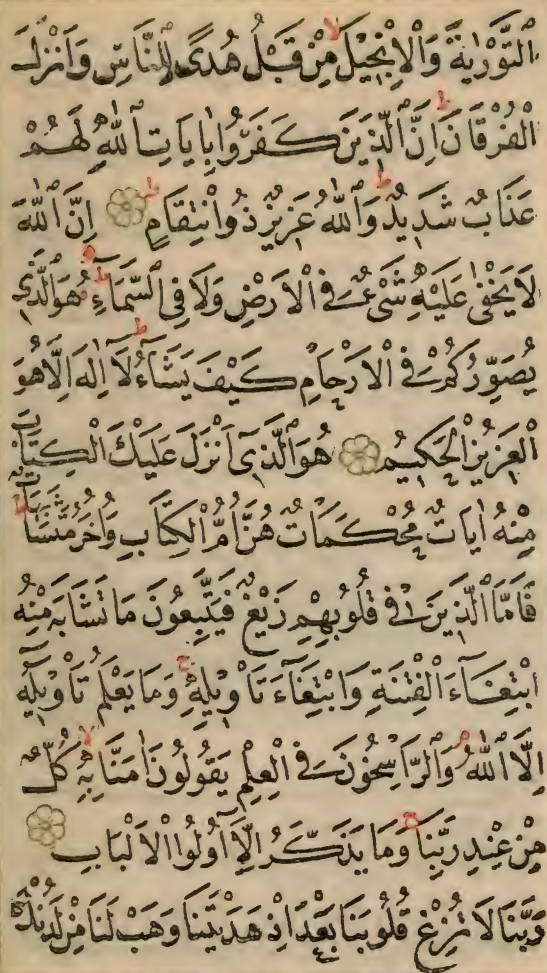 التَّوْرٰيةَ وَالْاِنْجٖيلَ مِنْ قَبْلُ هُدًى لِلنَّاسِ وَاَنْزَلَ
الْفُرْقَانَ اِنَّ الَّذٖينَ كَفَرُوا بِاٰيَاتِ اللّٰهِ لَهُمْ
عَذَابٌ شَدٖيدٌ وَاللّٰهُ عَزٖيزٌ ذُوانْتِقَامٍ اِنَّ اللّٰهَ
لَا يَخْفٰى عَلَيْهِ شَىْءٌ فِى الْاَرْضِ وَلَا فِى السَّمَاءِ هُوَ الَّذٖى
يُصَوِّرُكُمْ فِى الْاَرْحَامِ كَيْفَ يَشَاءُ لَا اِلٰهَ اِلَّا هُوَ
الْعَزٖيزُ الْحَكٖيمُ هُوَ الَّذٖى اَنْزَلَ عَلَيْكَ الْكِتَابَ
مِنْهُ اٰيَاتٌ مُحْكَمَاتٌ هُنَّ اُمُّ الْكِتَابِ وَاُخَرُ مُتَشَابِهَاتٌ
فَاَمَّا الَّذٖينَ فٖى قُلُوبِهِمْ زَيْغٌ فَيَتَّبِعُونَ مَا تَشَابَهَ مِنْهُ
ابْتِغَاءَ الْفِتْنَةِ وَابْتِغَاءَ تَاْوٖيلِهٖ وَمَا يَعْلَمُ تَاْوٖيلَهُ
اِلَّا اللّٰهُ وَالرَّاسِخُونَ فِى الْعِلْمِ يَقُولُونَ اٰمَنَّا بِهٖ كُلٌّ
مِنْ عِنْدِ رَبِّنَا وَمَا يَذَّكَّرُ اِلَّا اُولُوا الْاَلْبَابِ
رَبَّنَا لَا تُزِغْ قُلُوبَنَا بَعْدَ اِذْ هَدَيْتَنَا وَهَبْ لَنَا مِنْ لَدُنْكَ